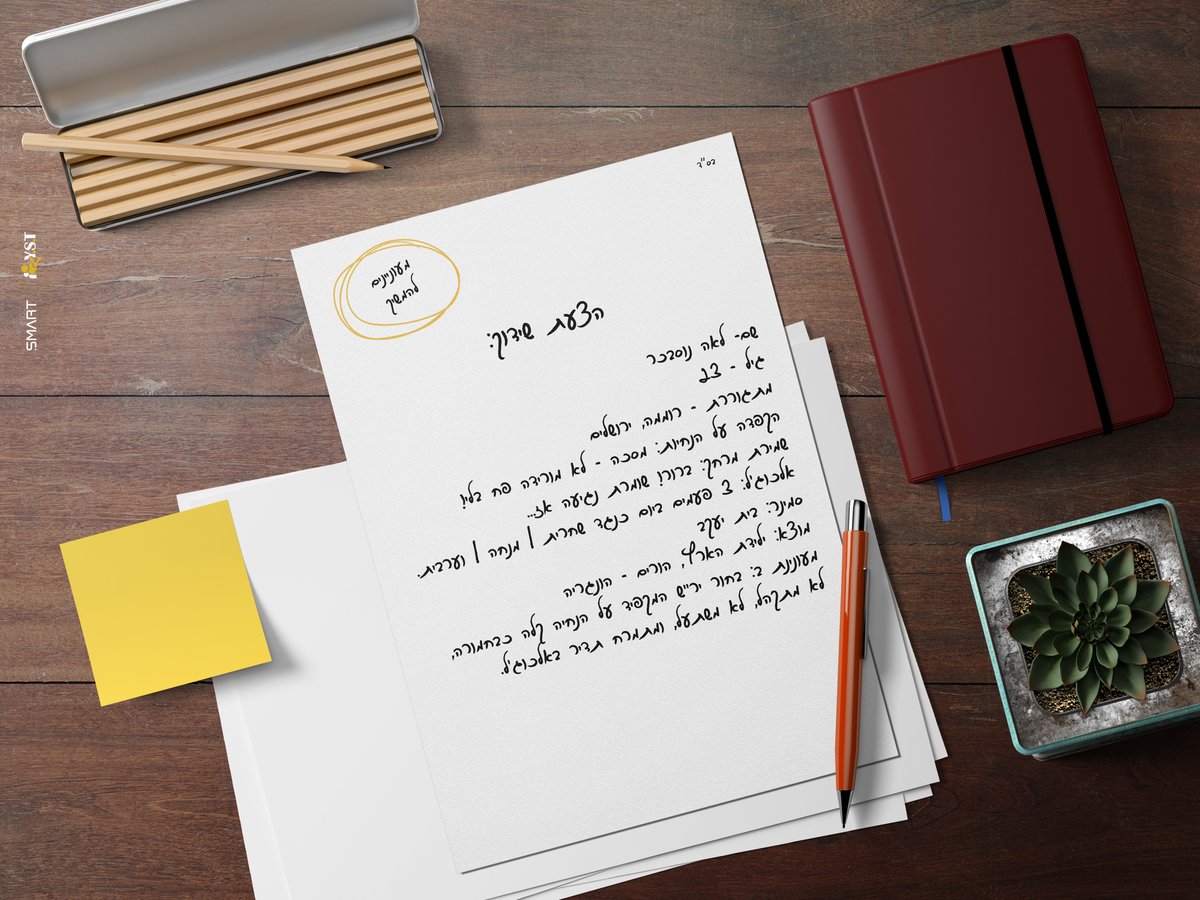 בס"ד
מעוניינים
להמשיך
הצעת שידוך:
שם- לאה נוסבכר
גיל - 23
מתגוררת - רוממה, ירושלים
הקפדה על הנחיות: מסכה - לא מורידה פח בלי!
שמירת מרחק: ברור! שומרת נגיעה אז...
אלכוג'ל: 3 פעמים ביום כנגד שחרית | מנחה | וערבית.
סמינר: בית יעקב
מוצא: ילידת הארץ, הורים - הונגריה
מעונינת ב: בחור ירי"ש המקפיד על הנחיה קלה כבחמורה,
לא מתקהל, לא משתעל, ומתמרח תדיר באלכוג'ל.
SMART
YST